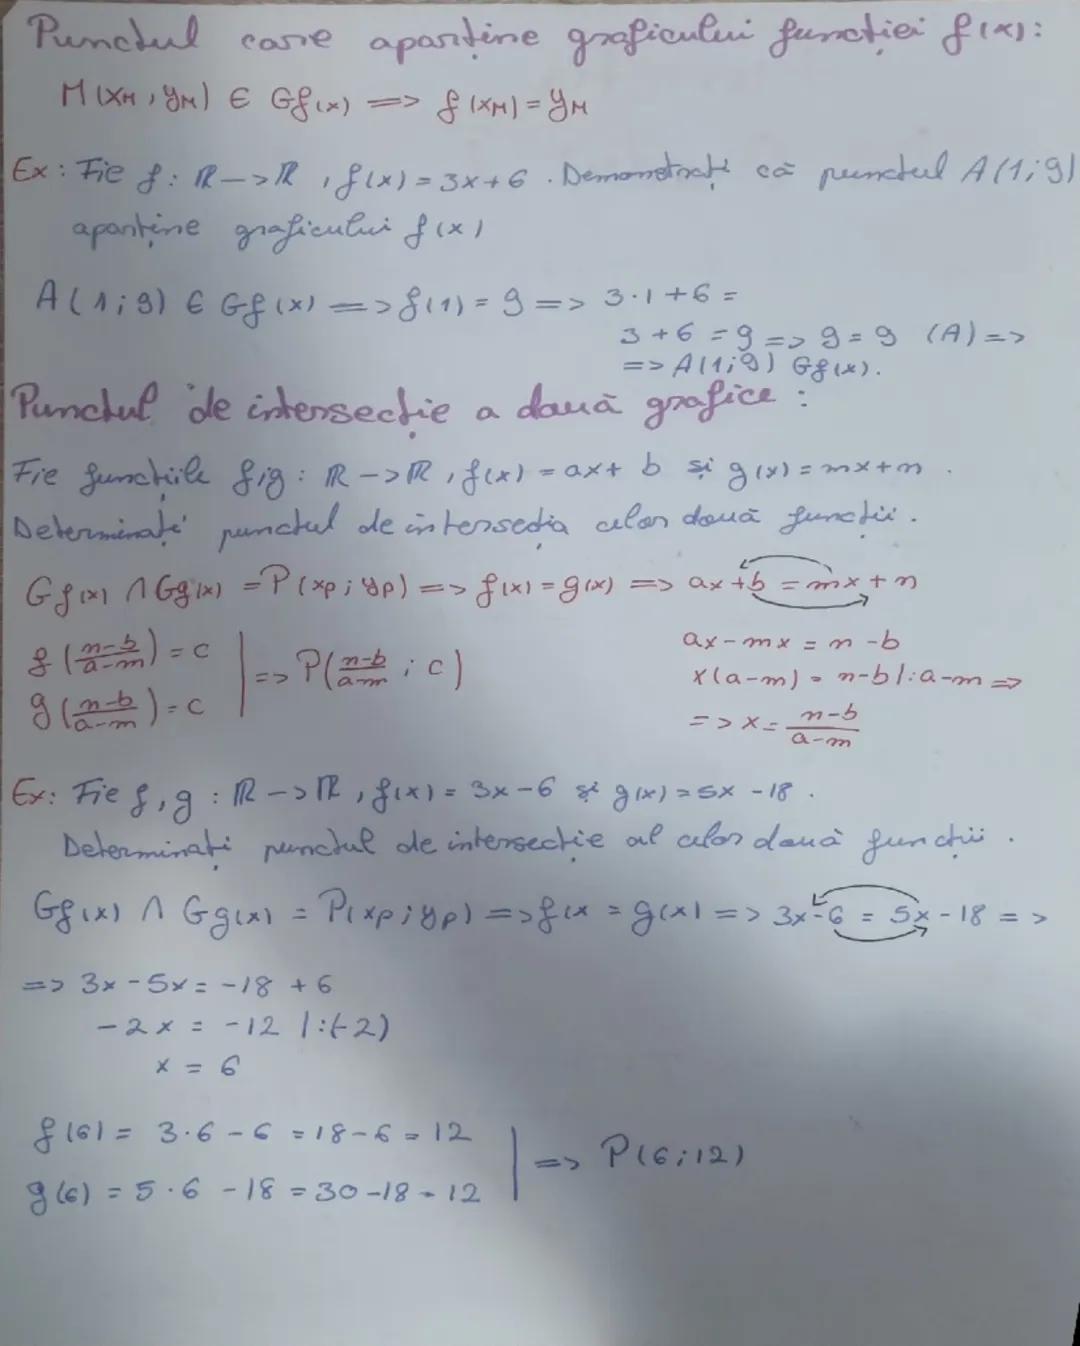 Punctul care aparține graficului funcției f(x):
M(xM, yM) ∈ Gf(x) => f(xM) = yM
Ex: Fie f: ℝ -> ℝ, f(x) = 3x+6. Demonstrați că punctul A(1;9)
aparține graficului f(x)
A(1;9) ∈ Gf(x) => f(1) = 9 => 3·1+6 =
3+6 = 9 => 9 = 9 (A) =>
=> A(1;9) Gf(x).
Punctul de intersecție a două grafice:
Fie funcțiile f;g: ℝ -> ℝ, f(x) = ax+b și g(x) = mx+n.
Determinați punctul de intersecția celor două funcții.
Gf(x) ∩ Gg(x) = P(xp; yp) => f(x) = g(x) => ax+b = mx+n
ax-mx = n-b
f((n-b)/(a-m)) = c
g((n-b)/(a-m)) = c | => P((n-b)/(a-m); c)
x(a-m) = n-b |:a-m =>
=> x = (n-b)/(a-m)
Ex: Fie f,g: ℝ -> ℝ, f(x) = 3x-6 și g(x) = 5x-18.
Determinați punctul de intersecție al celor două funcții.
Gf(x) ∩ Gg(x) = P(xp; yp) => f(x = g(x) => 3x-6 = 5x-18 =>
=> 3x-5x = -18+6
-2x = -12 |:(-2)
x = 6
f(6) = 3·6-6 = 18-6 = 12
g(6) = 5·6-18 = 30-18 = 12 | => P(6;12)